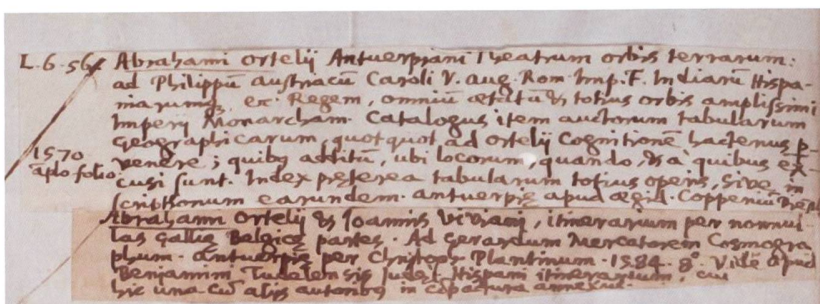 L.6.56. Abrahami Ortelij Antuerpiani Theatrum orbis terrarum:
ad Philippū austriacū Caroli V. aug. Rom. Imp. F. Indiarū Hispa-
niarumq, etc. Regem, omniū ætatū & totius orbis amplissimi
Imperij Monarcham. Catalogus item auctorum tabularum
Geographicarum, quotquot ad Ortelij Cognitionē hactenus p-
1570 venere; quibs additū, ubi locorum, quando, & a quibus ex-
aplo folio. cusi sunt. Index pręterea tabularum totius operis, sive in
scriptionum earundem. antuerpię apud ægid. Coppeniū
Abrahami Ortelij & Ioannis Viviani, itinerarium per nonnul
las Gallię Belgicę partes. Ad Gerardum Mercatorem Cosmogra
phum. antuerpię per Christoph. Plantinum. 1584. 8°. Vide apud
Beniamim Tudelensis Iudei Hispani itinerarium, cui
hic una cū alijs autoribs in copertura annexus.